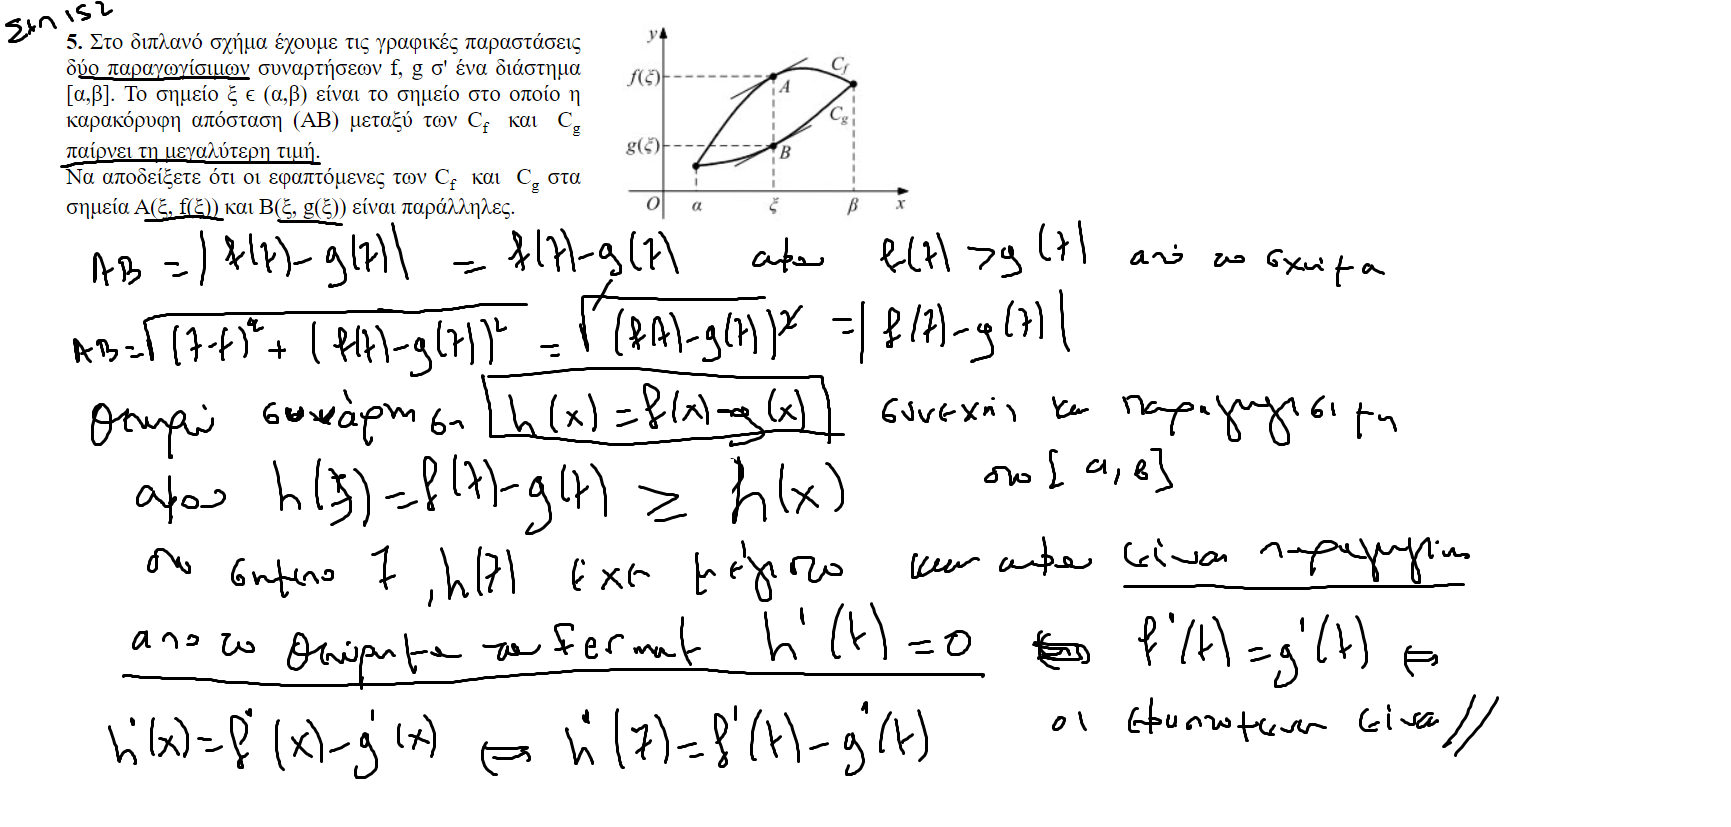 Σελ 152
5. Στο διπλανό σχήμα έχουμε τις γραφικές παραστάσεις
δύο παραγωγίσιμων συναρτήσεων f, g σ' ένα διάστημα
[α,β]. Το σημείο ξ ϵ (α,β) είναι το σημείο στο οποίο η
καρακόρυφη απόσταση (ΑΒ) μεταξύ των C_f και C_g
παίρνει τη μεγαλύτερη τιμή.
Να αποδείξετε ότι οι εφαπτόμενες των C_f και C_g στα
σημεία Α(ξ, f(ξ)) και Β(ξ, g(ξ)) είναι παράλληλες.
y
f(ξ)
A
C_f
C_g
g(ξ)
B
O α ξ β x
AB = |f(ξ)-g(ξ)| = f(ξ)-g(ξ) αφου f(ξ) > g(ξ) από το σχημα
AB = √(ξ-ξ)² + (f(ξ)-g(ξ))² = √(f(ξ)-g(ξ))² = |f(ξ)-g(ξ)|
Θεωρώ συνάρτηση h(x) = f(x)-g(x) συνεχής και παραγωγίσιμη
στο [α,β]
αφου h(ξ) = f(ξ)-g(ξ) ≥ h(x)
στο σημειο ξ, h(ξ) έχει μέγιστο και αφου είναι παραγωγίσιμη
απο το Θεώρημα του Fermat h'(ξ) = 0 ⇔ f'(ξ) = g'(ξ) ⇔
h'(x) = f'(x)-g'(x) ⇔ h'(ξ) = f'(ξ)-g'(ξ) οι εφαπτομενες είναι //